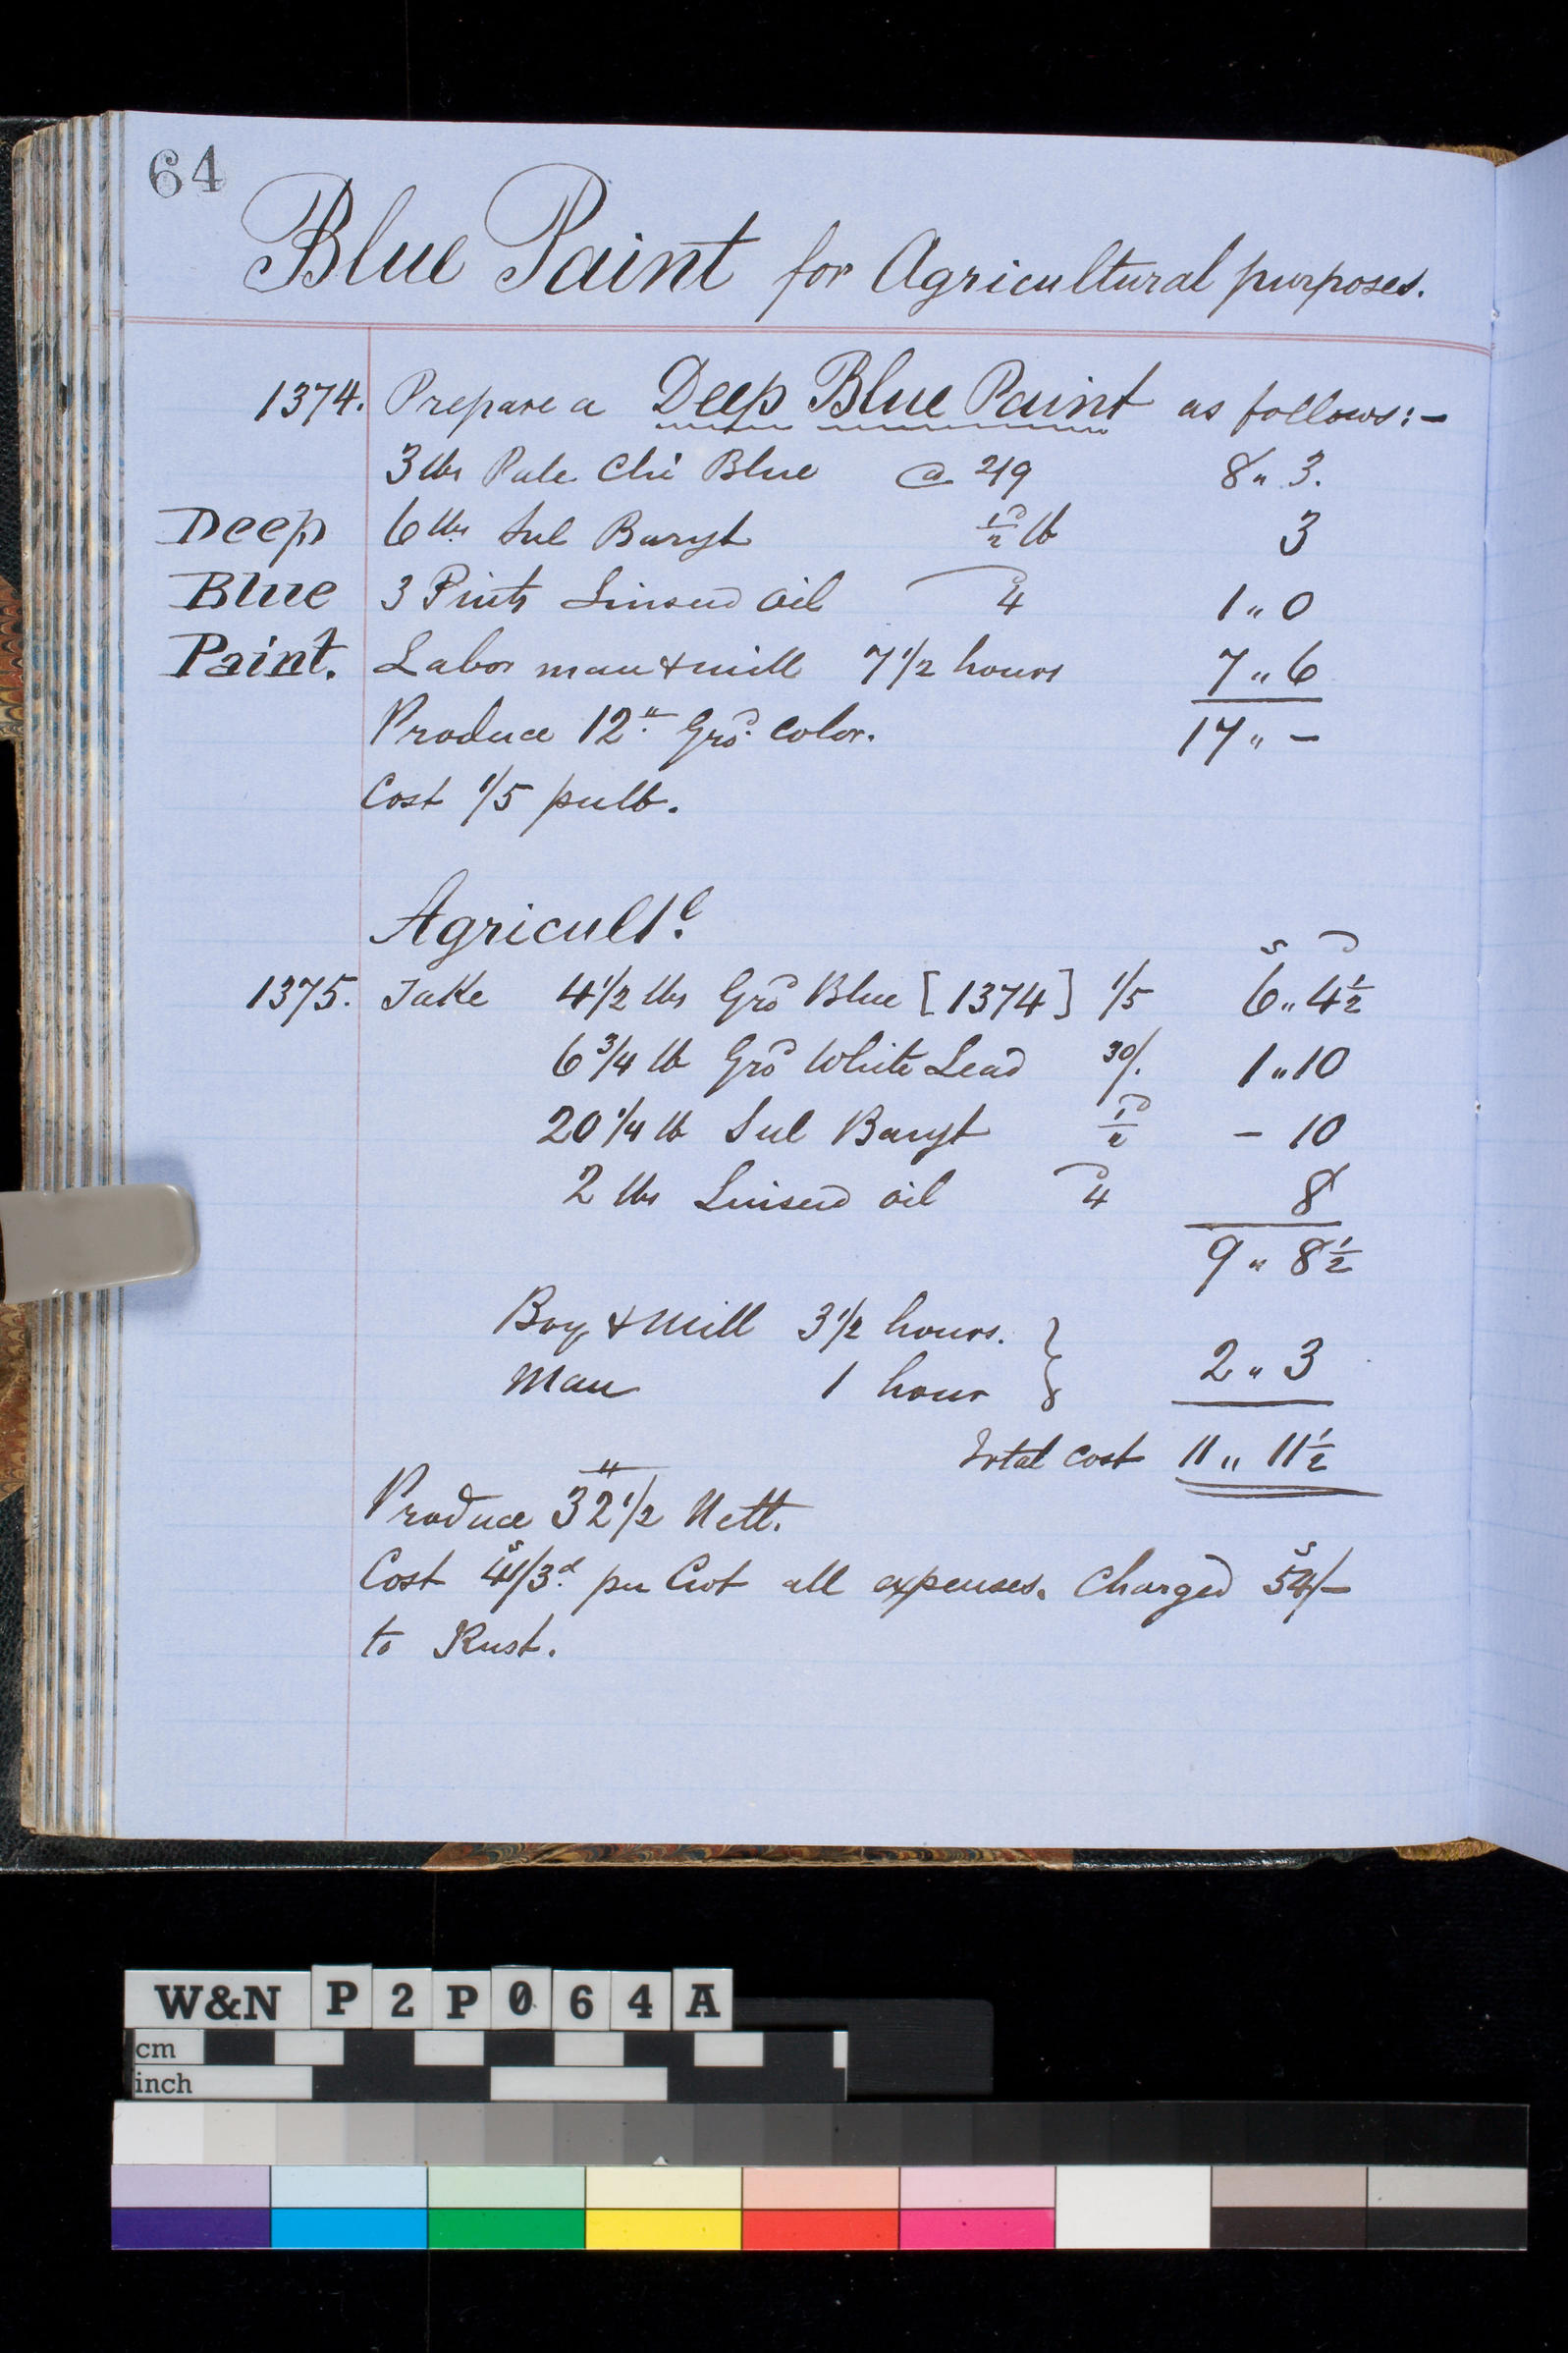 64
Blue Paint for Agricultural purposes.
1374. Prepare a Deep Blue Paint as follows:-
3 lbs Pale Chi Blue @ 2/9 8 " 3.
Deep 6 lbs Sul Baryt ½ᵈ lb 3
Blue 3 Pints Linseed Oil 4ᵈ 1 " 0
Paint. Labor man & mill 7 1/2 hours 7 " 6
Produce 12 " Grᵈ color. 17 " -
Cost 1/5 per lb.
Agricultˡ.
s d
1375. Take 4 1/2 lbs Grᵈ Blue [1374] 1/5 6 " 4½
6 3/4 lb Grᵈ White Lead 30/. 1 " 10
20 1/4 lb Sul Baryt ½ᵈ - 10
2 lbs Linseed Oil 4ᵈ 8
9 " 8½
Boy & Mill 3 1/2 hours. }
2 " 3
Man 1 hour
Total cost 11 " 11½
Produce 32 1/2 " Nett.
Cost 41ˢ/3ᵈ. per Cwt all expenses. Charged 54ˢ/-
to Rust.
W&N P2P064A
cm
inch